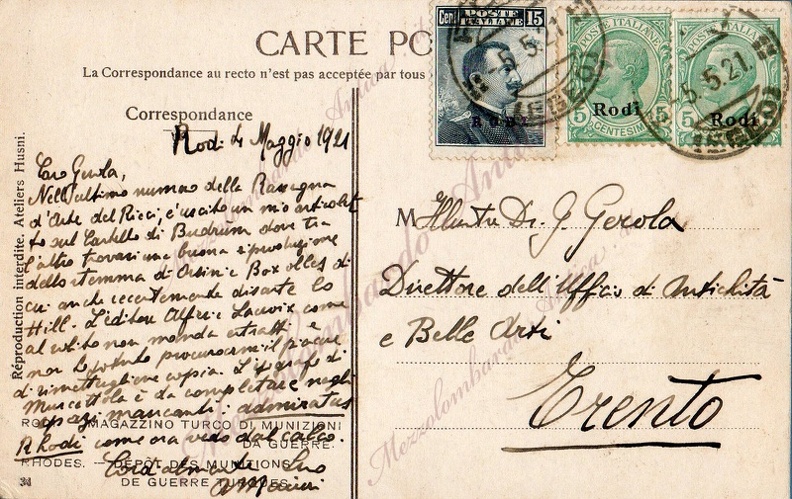 CARTE PO
La Correspondance au recto n'est pas acceptée par tous
Correspondance
Rodi 4 Maggio 1921
Caro Gerola,
Nell'ultimo numero della Rassegna
d'Arte del Ricci, è uscito un mio articolet
to sul Castello di Budrum dove tra
l'altro troverai una buona riproduzione
dello stemma di Orsini e Boxolles di
cui anche recentemente disserte lo
Hill. L'editore Alfieri Lacroix come
al solito non manda estratti e
non ho potuto procurarmi il piacere
di rimettergliene copia. L'epigrafe di
Muscettola è da completare negli
spazi mancanti: admiratus
R Rhodi come ora vedo dal calco.
Cordialmente Suo
A Maiuri
RODI - MAGAZZINO TURCO DI MUNIZIONI
DA GUERRE.
RHODES. - DEPÔT DES MUNITIONS
DE GUERRE TURQUES.
34
Réproduction interdite. Ateliers Husni.
Cent. POSTE ITALIANE 15
RODI
POSTE ITALIANE
Rodi
5 CENTESIMI 5
POSTE ITALIANE
Rodi
5
5.5.21
(EGEO)
5.5.21
(EGEO)
M Illustre Dr. G. Gerola
Direttore dell'Ufficio di Antichità
e Belle Arti
Trento
Mezzolombardo Antica
Mezzolombardo Antica
Mezzolombardo Antica